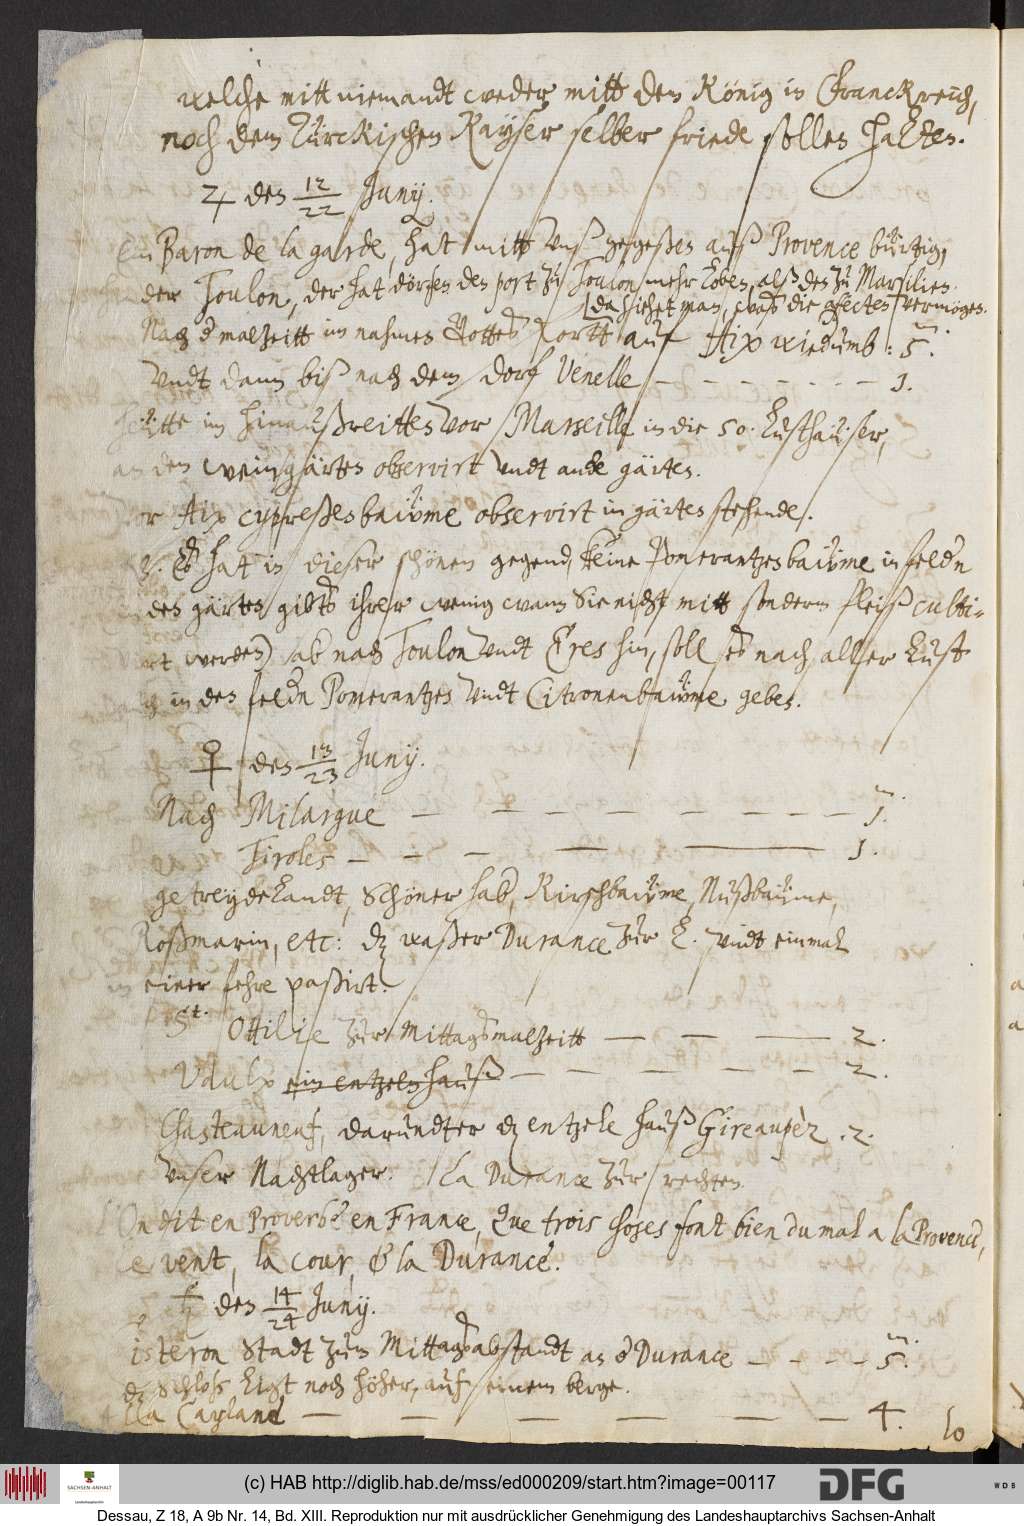 welche mitt niemandt weder mitt den König in Franckreich,
noch dem Türckischen Kayser selber friede sollen halten.
♃ den 12/22 Juny.
Ein Baron de la garde, hat mitt unß gegeßen auß Provence bürtig,
der Toulon, der hat dörfen den port zu Toulon mehr loben, alß den zu Marsilien.
(da siehet man, waß die affecten vermögen.
Nach der malzeitt im nahmen Gottes fortt auf Aix wiedumb : 5.
Undt dann biß nach dem dorf Venelle — — — — — — 1.
Heütte im hinaußreitten vor Marseille in die 50. Lusthäuser,
an den weingärten observirt undt andre gärten.
Vor Aix cypreßenbaüme observirt in gärten stehende.
Es hat in dieser schönen gegend, keine Pomerantzenbaüme in feldern
in den gärten gibts ihrer wenig wann Sie nicht mitt sonderm fleiß culti-
virt werden) ab nach Toulon undt Eres hin, soll es nach aller Lust
in den feldern Pomerantzen undt Citronenbaüme geben.
♀ den 13/23 Juny.
Nach Milargue — — — — — — — — — 1.
Tiroles — — — — — 1.
getreydelandt, Schöner hab, Kirschbaüme, Nußbaüme,
Roßmarin, etc: dz waßer Durance zur L. undt einmal
in einer fehre paßirt.
St. Ottilie zur Mittagsmalzeitt — — — 2.
Vdulx ein entzeln hauß — — — — — — 2.
Chasteauneuf, darundter dz entzele hauß Gireaupèz .2.
Unser Nachtlager. La Durance zur rechten.
On dit en Proverbe en France, Que trois choses font bien du mal a la Provence,
le vent, la cour, & la Durance.
♄ den 14/24 Juny.
isteron Stadt zum Mittagsabstandt an der Durance — — — — 5.
dz Schloß ligt noch höher, auf einem berge.
lla Cayland — — — — — — 4.
lo
(c) HAB http://diglib.hab.de/mss/ed000209/start.htm?image=00117
SACHSEN-ANHALT
Landeshauptarchiv
DFG
WDB
Dessau, Z 18, A 9b Nr. 14, Bd. XIII. Reproduktion nur mit ausdrücklicher Genehmigung des Landeshauptarchivs Sachsen-Anhalt